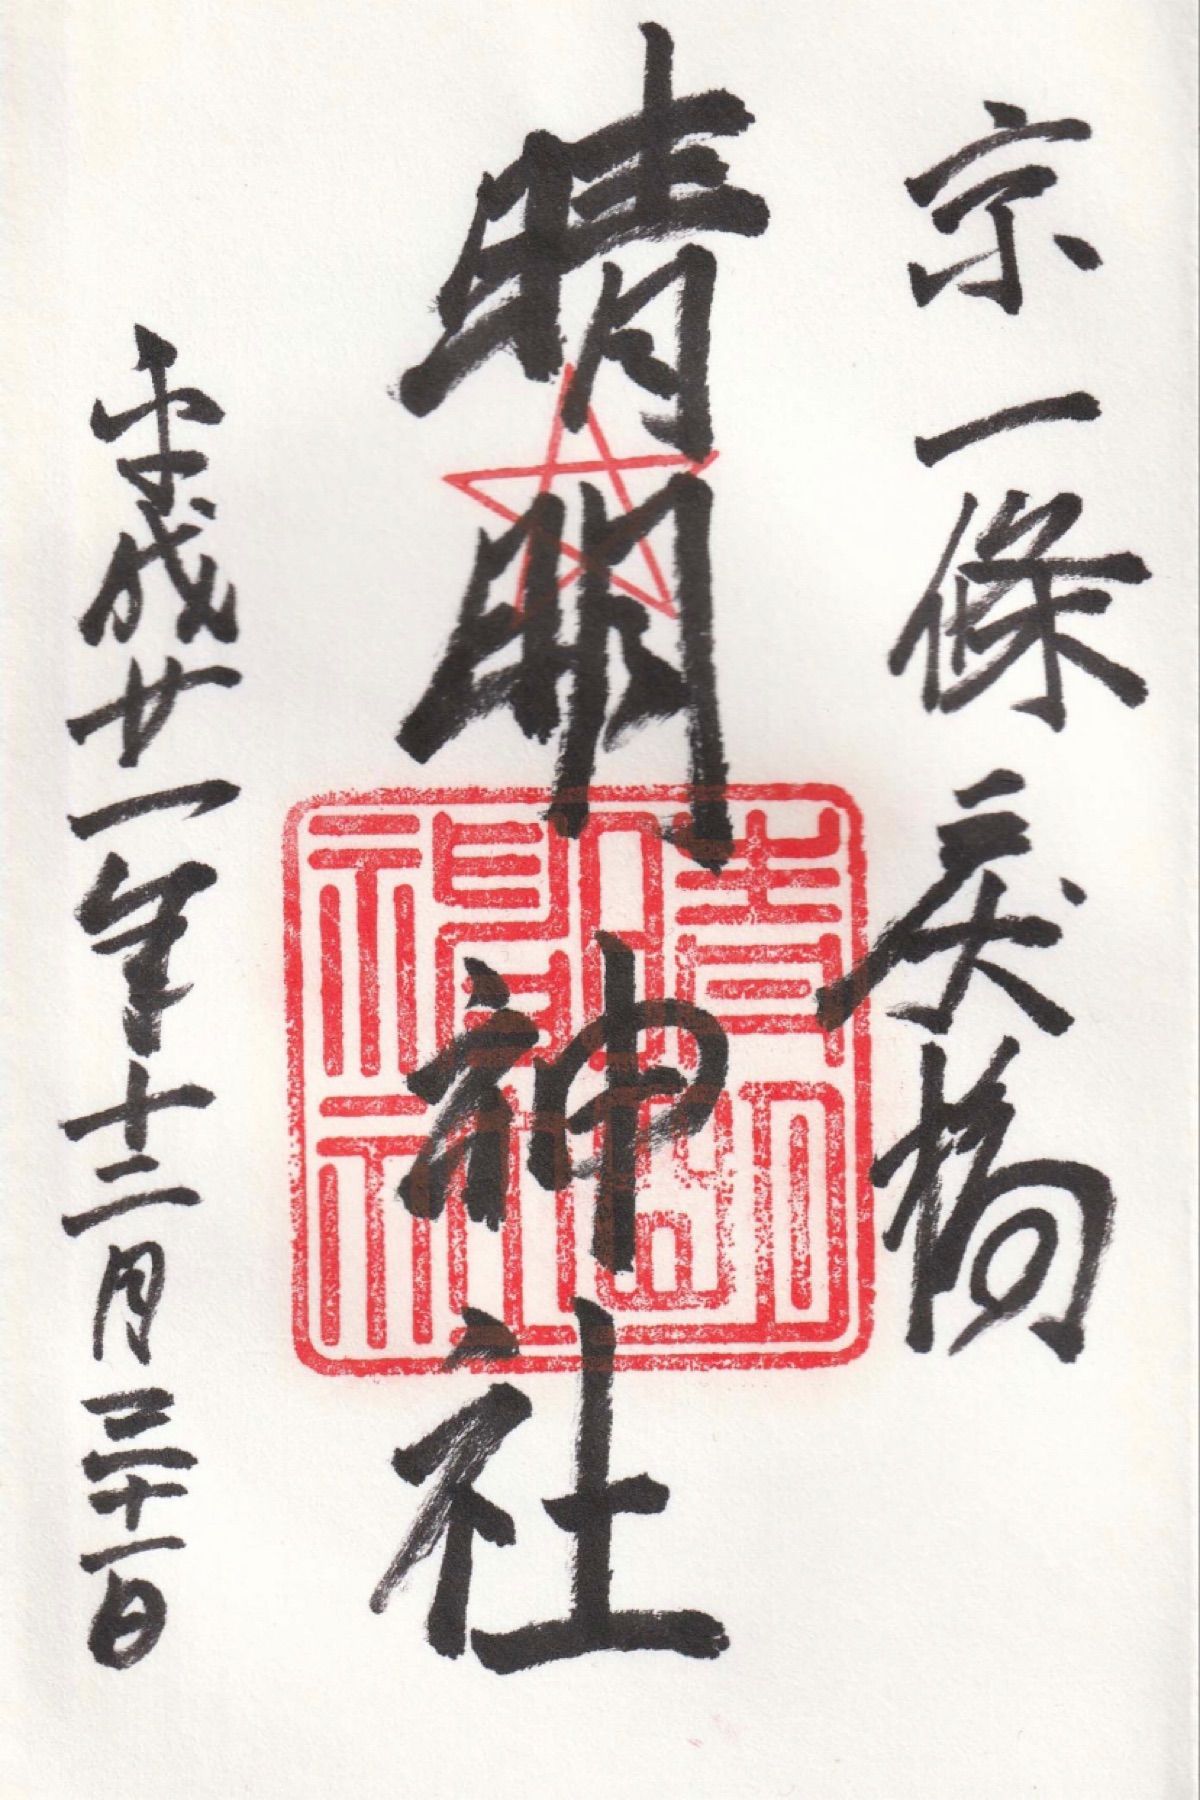 京一條戻橋
晴明神社
晴明神社
平成廿一年十二月三十一日